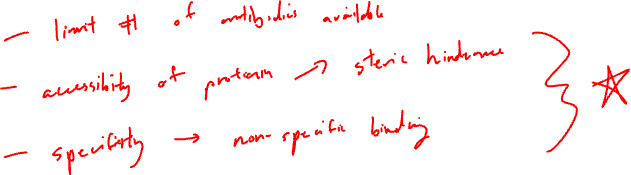 — limit # of antibodies available
— accessibility of protein → steric hindrance
— specificity → non-specific binding